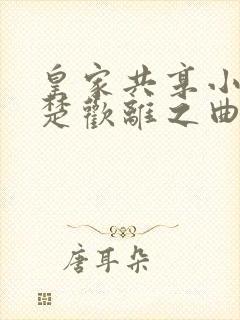 皇家共享小
楚歡離之曲
唐耳朵